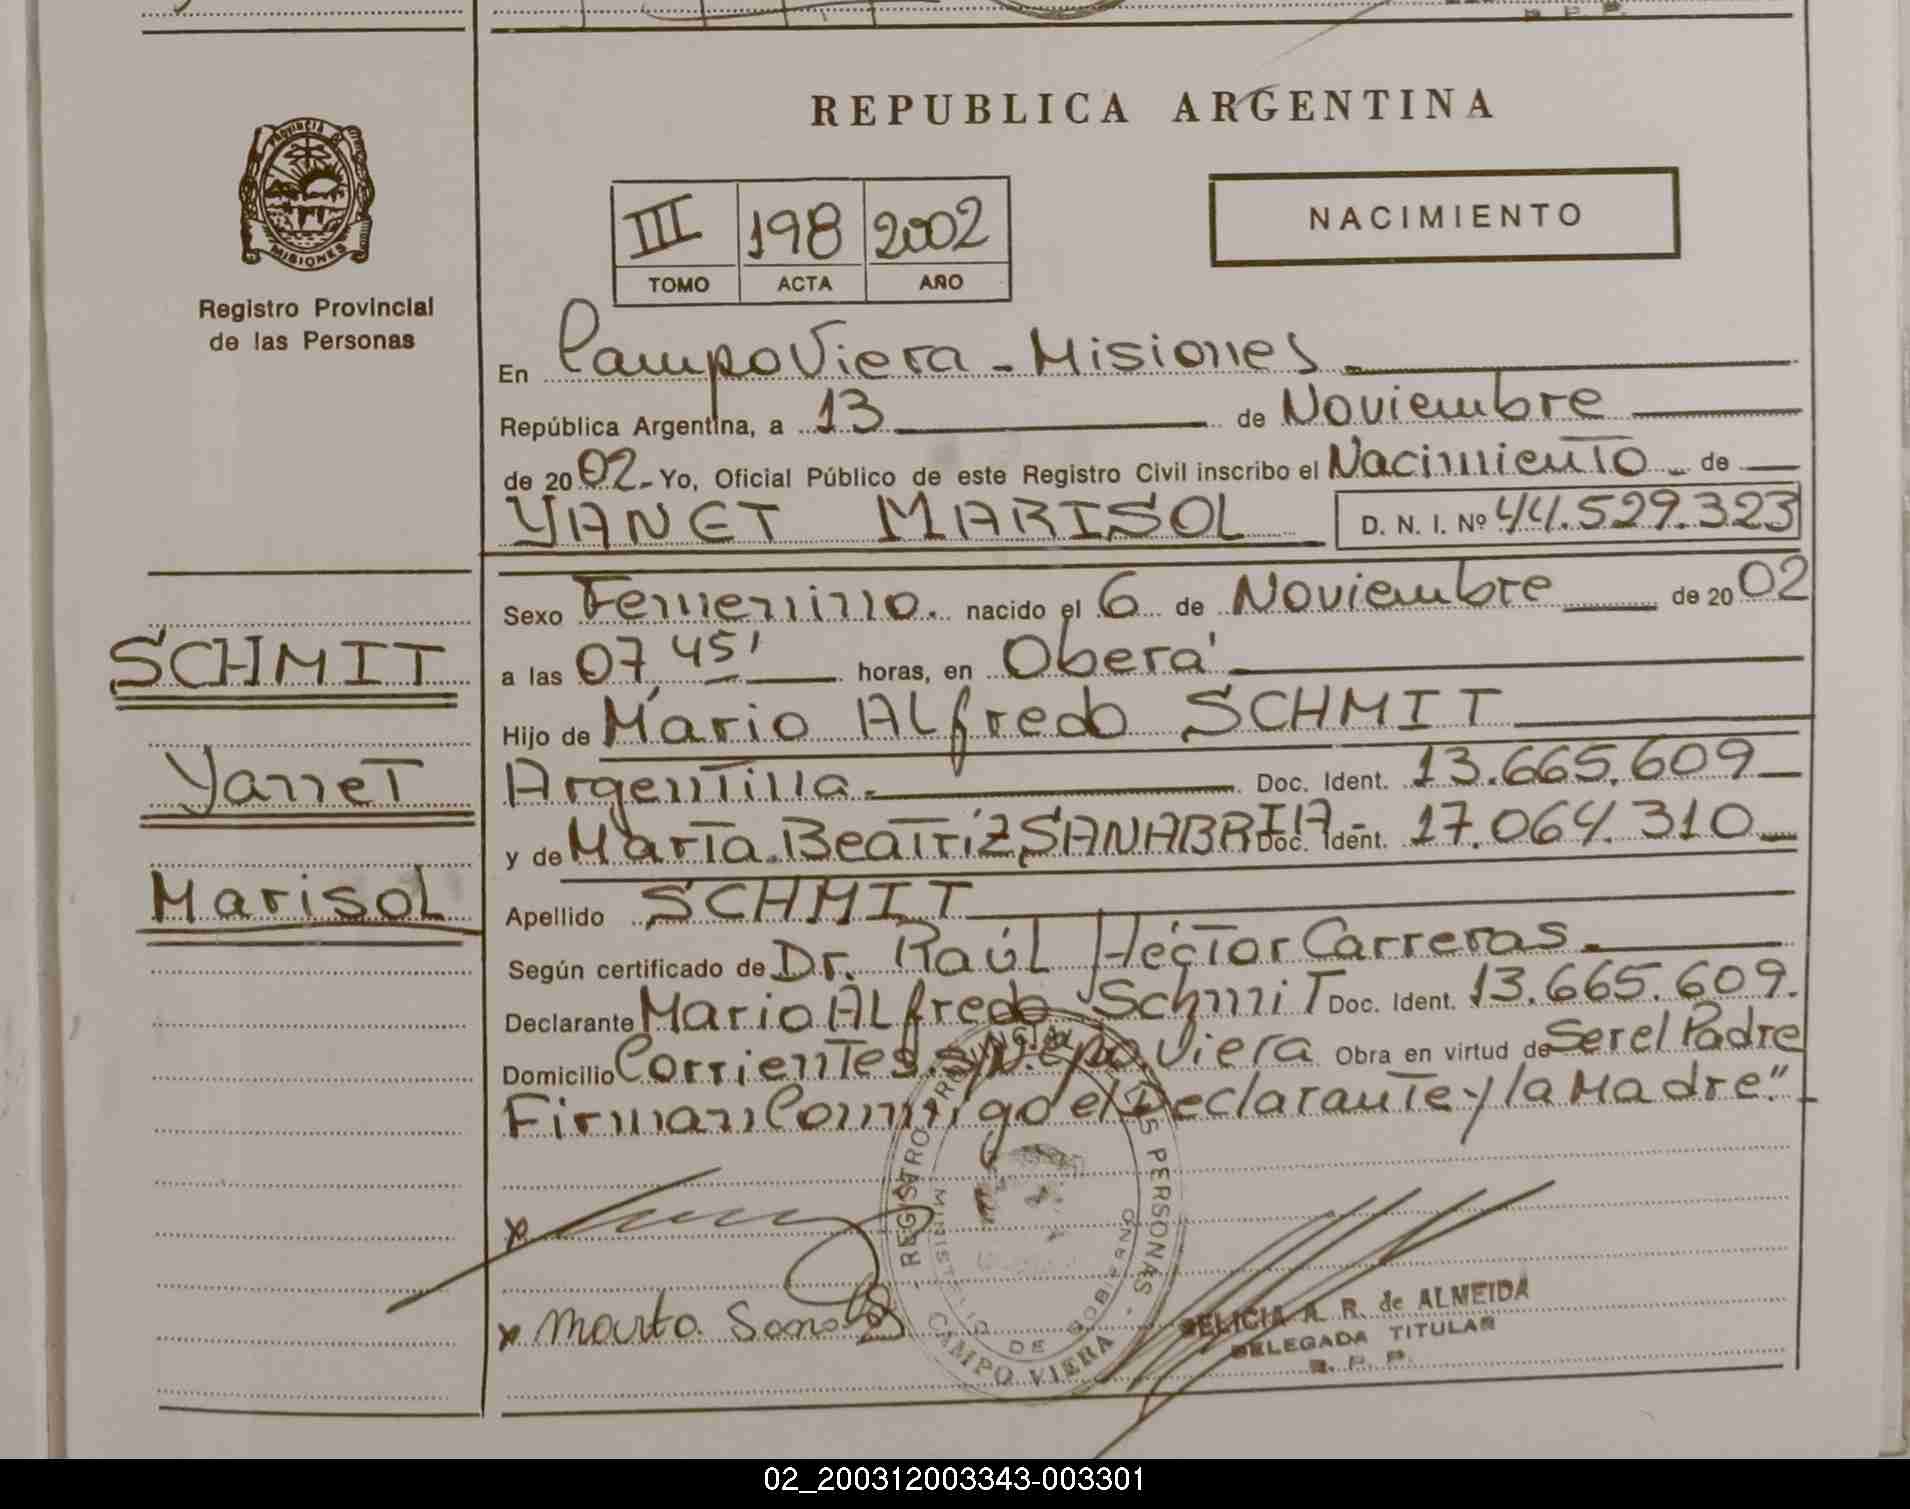 REPUBLICA ARGENTINA
PROVINCIA DE
MISIONES
Registro Provincial
de las Personas
III 198 2002
TOMO ACTA AÑO
NACIMIENTO
En Campo Viera - Misiones
República Argentina, a 13 de Noviembre
de 20 02 - Yo, Oficial Público de este Registro Civil inscribo el Nacimiento de
YANET MARISOL D. N. I. Nº 44.529.323
Sexo Femenino. nacido el 6 de Noviembre de 20 02
a las 07 45' horas, en Oberá
Hijo de Mario Alfredo SCHMIT
Argentina. Doc. Ident. 13.665.609
y de Marta Beatriz SANABRIA - Doc. Ident. 17.064.310
Apellido SCHMIT
Según certificado de Dr. Raúl Héctor Carreras.
Declarante Mario Alfredo Schmit Doc. Ident. 13.665.609.
Domicilio Corrientes s/N. Cpo. Viera Obra en virtud de Ser el Padre
Firman Conmigo el Declarante y la Madre."
SCHMIT
Yanet
Marisol
x
x Marta Sanab
REGISTRO PROVINCIAL DE LAS PERSONAS
MINISTERIO DE GOBIERNO
CAMPO VIERA
A. R. de ALMEIDA
DELEGADA TITULAR
R. P. P.
02_200312003343-003301